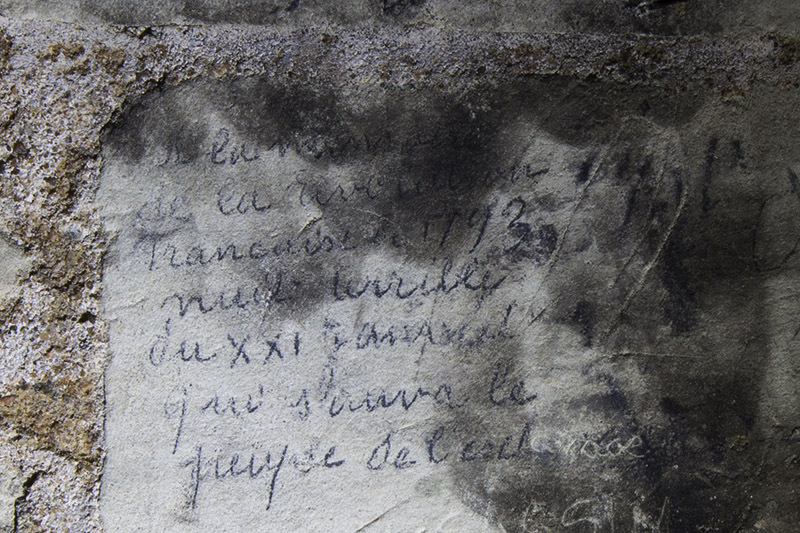 A la mémoire
de la Révolution
Française 1793
nuit terrible
du XXI Janvier
qui sauva le
peuple de l'esclavage